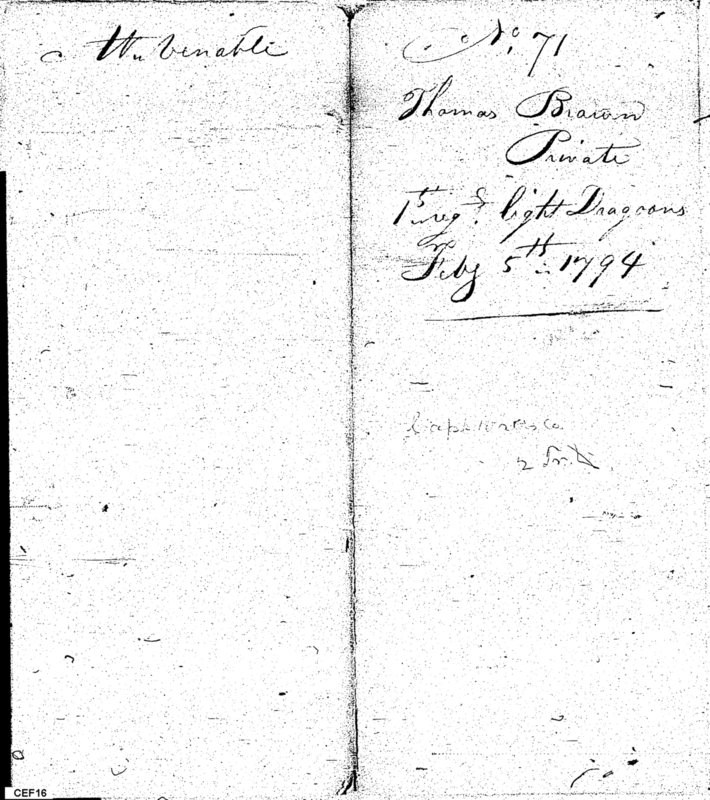 Wm Venable
No. 71
Thomas Brown
Private
1st regt. light Dragoons
Feby 5th 1794
Capt Co
2
CEF16